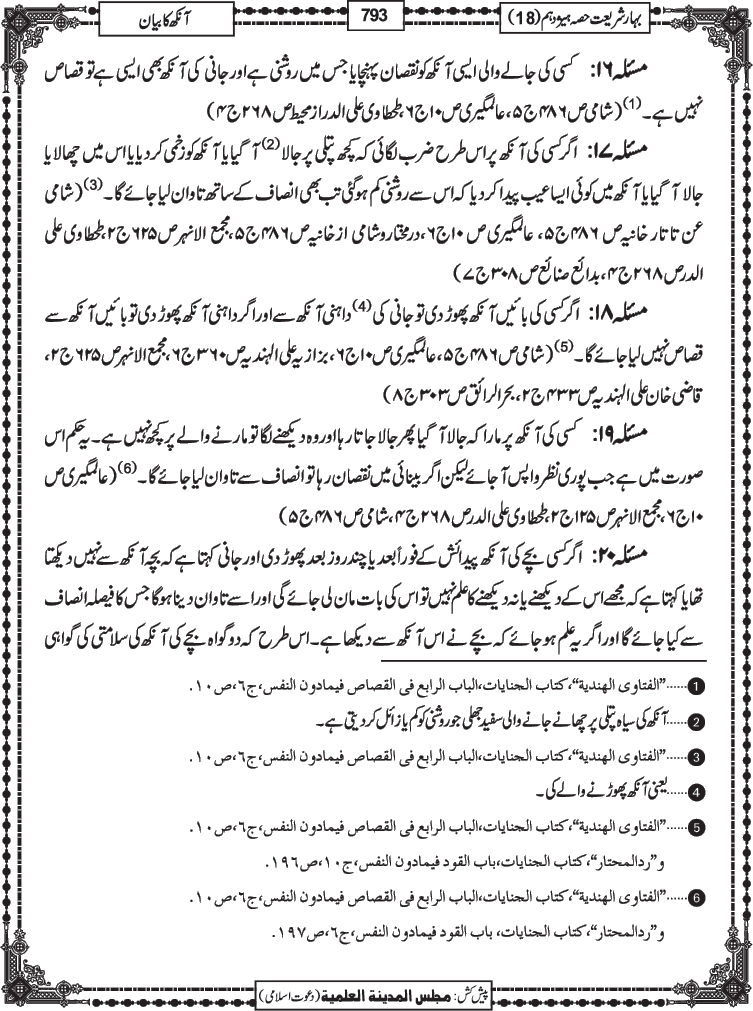 بہارِ شریعت حصہ ہیژدہم (18)
793
آنکھ کا بیان
مسئلہ ۱۶: کسی کی جالے والی ایسی آنکھ کو نقصان پہنچایا جس میں روشنی ہے اور جانی کی آنکھ بھی ایسی ہے تو قصاص
نہیں ہے۔(1) (شامی ص ۴۸۶ ج ۵، عالمگیری ص ۱۰ ج ۶، طحطاوی علی الدر از محیط ص ۲۶۸ ج ۴)
مسئلہ ۱۷: اگر کسی کی آنکھ پر اس طرح ضرب لگائی کہ کچھ پتلی پر جالا(2) آ گیا یا آنکھ کو زخمی کر دیا یا اس میں چھالا یا
جالا آ گیا یا آنکھ میں کوئی ایسا عیب پیدا کر دیا کہ اس سے روشنی کم ہو گئی تب بھی انصاف کے ساتھ تاوان لیا جائے گا۔(3) (شامی
عن تاتارخانیہ ص ۴۸۶ ج ۵، عالمگیری ص ۱۰ ج ۶، درمختار و شامی از خانیہ ص ۴۸۶ ج ۵، مجمع الانہر ص ۶۲۵ ج ۲، طحطاوی علی
الدر ص ۲۶۸ ج ۴، بدائع صنائع ص ۳۰۸ ج ۷)
مسئلہ ۱۸: اگر کسی کی بائیں آنکھ پھوڑ دی تو جانی کی(4) داہنی آنکھ سے اور اگر داہنی آنکھ پھوڑ دی تو بائیں آنکھ سے
قصاص نہیں لیا جائے گا۔(5) (شامی ص ۴۸۶ ج ۵، عالمگیری ص ۱۰ ج ۶، بزازیہ علی الہندیہ ص ۳۶۰ ج ۶، مجمع الانہر ص ۶۲۵ ج ۲،
قاضی خان علی الہندیہ ص ۴۳۳ ج ۲، بحر الرائق ص ۳۰۳ ج ۸)
مسئلہ ۱۹: کسی کی آنکھ پر مارا کہ جالا آ گیا پھر جالا جاتا رہا اور وہ دیکھنے لگا تو مارنے والے پر کچھ نہیں ہے۔ یہ حکم اس
صورت میں ہے جب پوری نظر واپس آ جائے لیکن اگر بینائی میں نقصان رہا تو انصاف سے تاوان لیا جائے گا۔(6) (عالمگیری ص
۱۰ ج ۶، مجمع الانہر ص ۱۲۵ ج ۲، طحطاوی علی الدر ص ۲۶۸ ج ۴، شامی ص ۴۸۶ ج ۵)
مسئلہ ۲۰: اگر کسی بچے کی آنکھ پیدائش کے فوراً بعد یا چند روز بعد پھوڑ دی اور جانی کہتا ہے کہ بچہ آنکھ سے نہیں دیکھتا
تھا یا کہتا ہے کہ مجھے اس کے دیکھنے یا نہ دیکھنے کا علم نہیں تو اس کی بات مان لی جائے گی اور اسے تاوان دینا ہوگا جس کا فیصلہ انصاف
سے کیا جائے گا اور اگر یہ علم ہو جائے کہ بچے نے اس آنکھ سے دیکھا ہے۔ اس طرح کہ دو گواہ بچے کی آنکھ کی سلامتی کی گواہی
1......"الفتاوی الهندیة"، کتاب الجنایات، الباب الرابع فی القصاص فیمادون النفس، ج٦، ص١٠.
2......آنکھ کی سیاہ پتلی پر چھا نے جانے والی سفید جھلی جو روشنی کو کم یا زائل کر دیتی ہے۔
3......"الفتاوی الهندیة"، کتاب الجنایات، الباب الرابع فی القصاص فیمادون النفس، ج٦، ص١٠.
4......یعنی آنکھ پھوڑنے والے کی۔
5......"الفتاوی الهندیة"، کتاب الجنایات، الباب الرابع فی القصاص فیمادون النفس، ج٦، ص١٠.
و"ردالمحتار"، کتاب الجنایات، باب القود فیمادون النفس، ج١٠، ص١٩٦.
6......"الفتاوی الهندیة"، کتاب الجنایات، الباب الرابع فی القصاص فیمادون النفس، ج٦، ص١٠.
و"ردالمحتار"، کتاب الجنایات، باب القود فیمادون النفس، ج٦، ص١٩٧.
پیش کش: مجلس المدینة العلمیة (دعوت اسلامی)